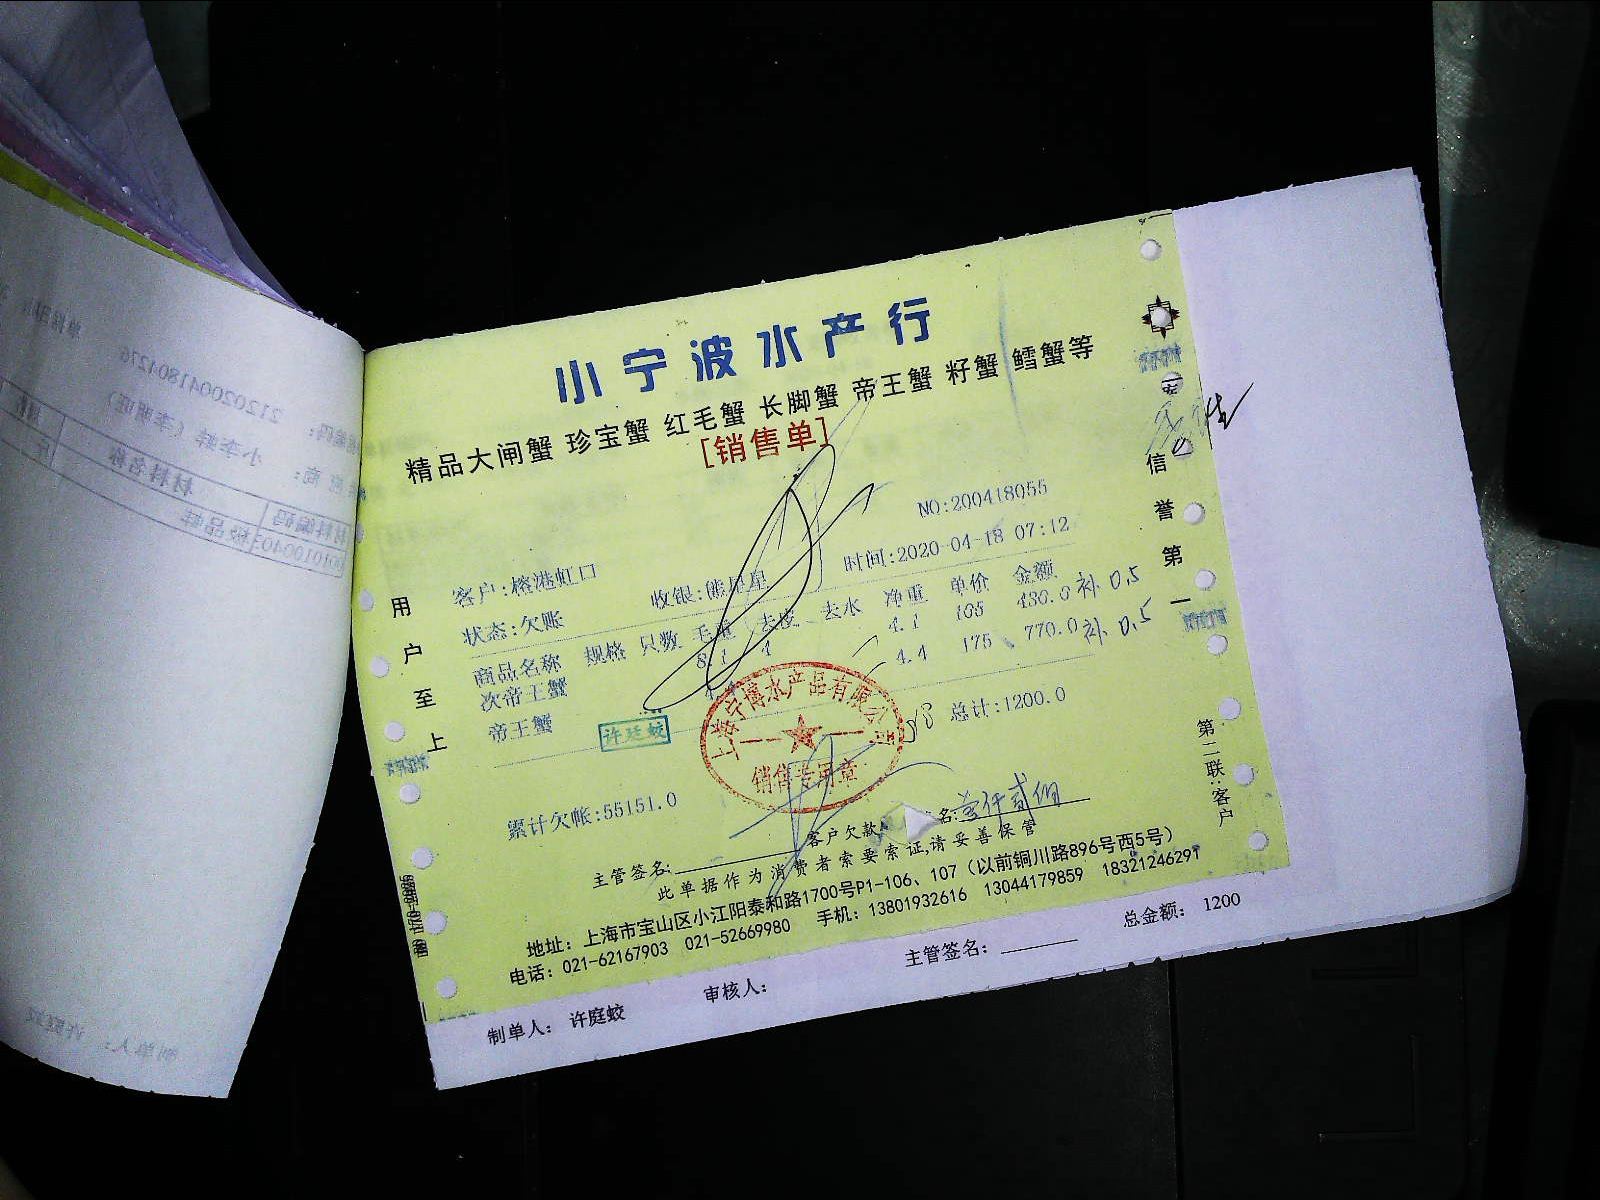 小宁波水产行
精品大闸蟹 珍宝蟹 红毛蟹 长脚蟹 帝王蟹 籽蟹 鳕蟹等
[销售单]
NO:200418055
客户:榕港虹口 收银:熊星星 时间:2020-04-18 07:12
状态:欠账
商品名称 规格 只数 毛重 去皮 去水 净重 单价 金额
次帝王蟹 8.1 4 4.1 105 430.0 补 0.5
帝王蟹 4.4 175 770.0 补 0.5
许廷蛟
上海宁博水产品有限公司
销售专用章
总计:1200.0
累计欠帐:55151.0
主管签名: 客户欠款 名:壹仟贰佰
此单据作为消费者索要索证,请妥善保管
地址: 上海市宝山区小江阳泰和路1700号P1-106、107 (以前铜川路896号西5号)
电话: 021-62167903 021-52669980 手机: 13801932616 13044179859 18321246291
用户至上
信誉第一
第二联:客户
制单人: 许庭蛟 审核人: 主管签名: 总金额: 1200
212020041804276
小李蚌(李明旺)
材料编码 材料名称
极品蚌
制单人: 许庭蛟